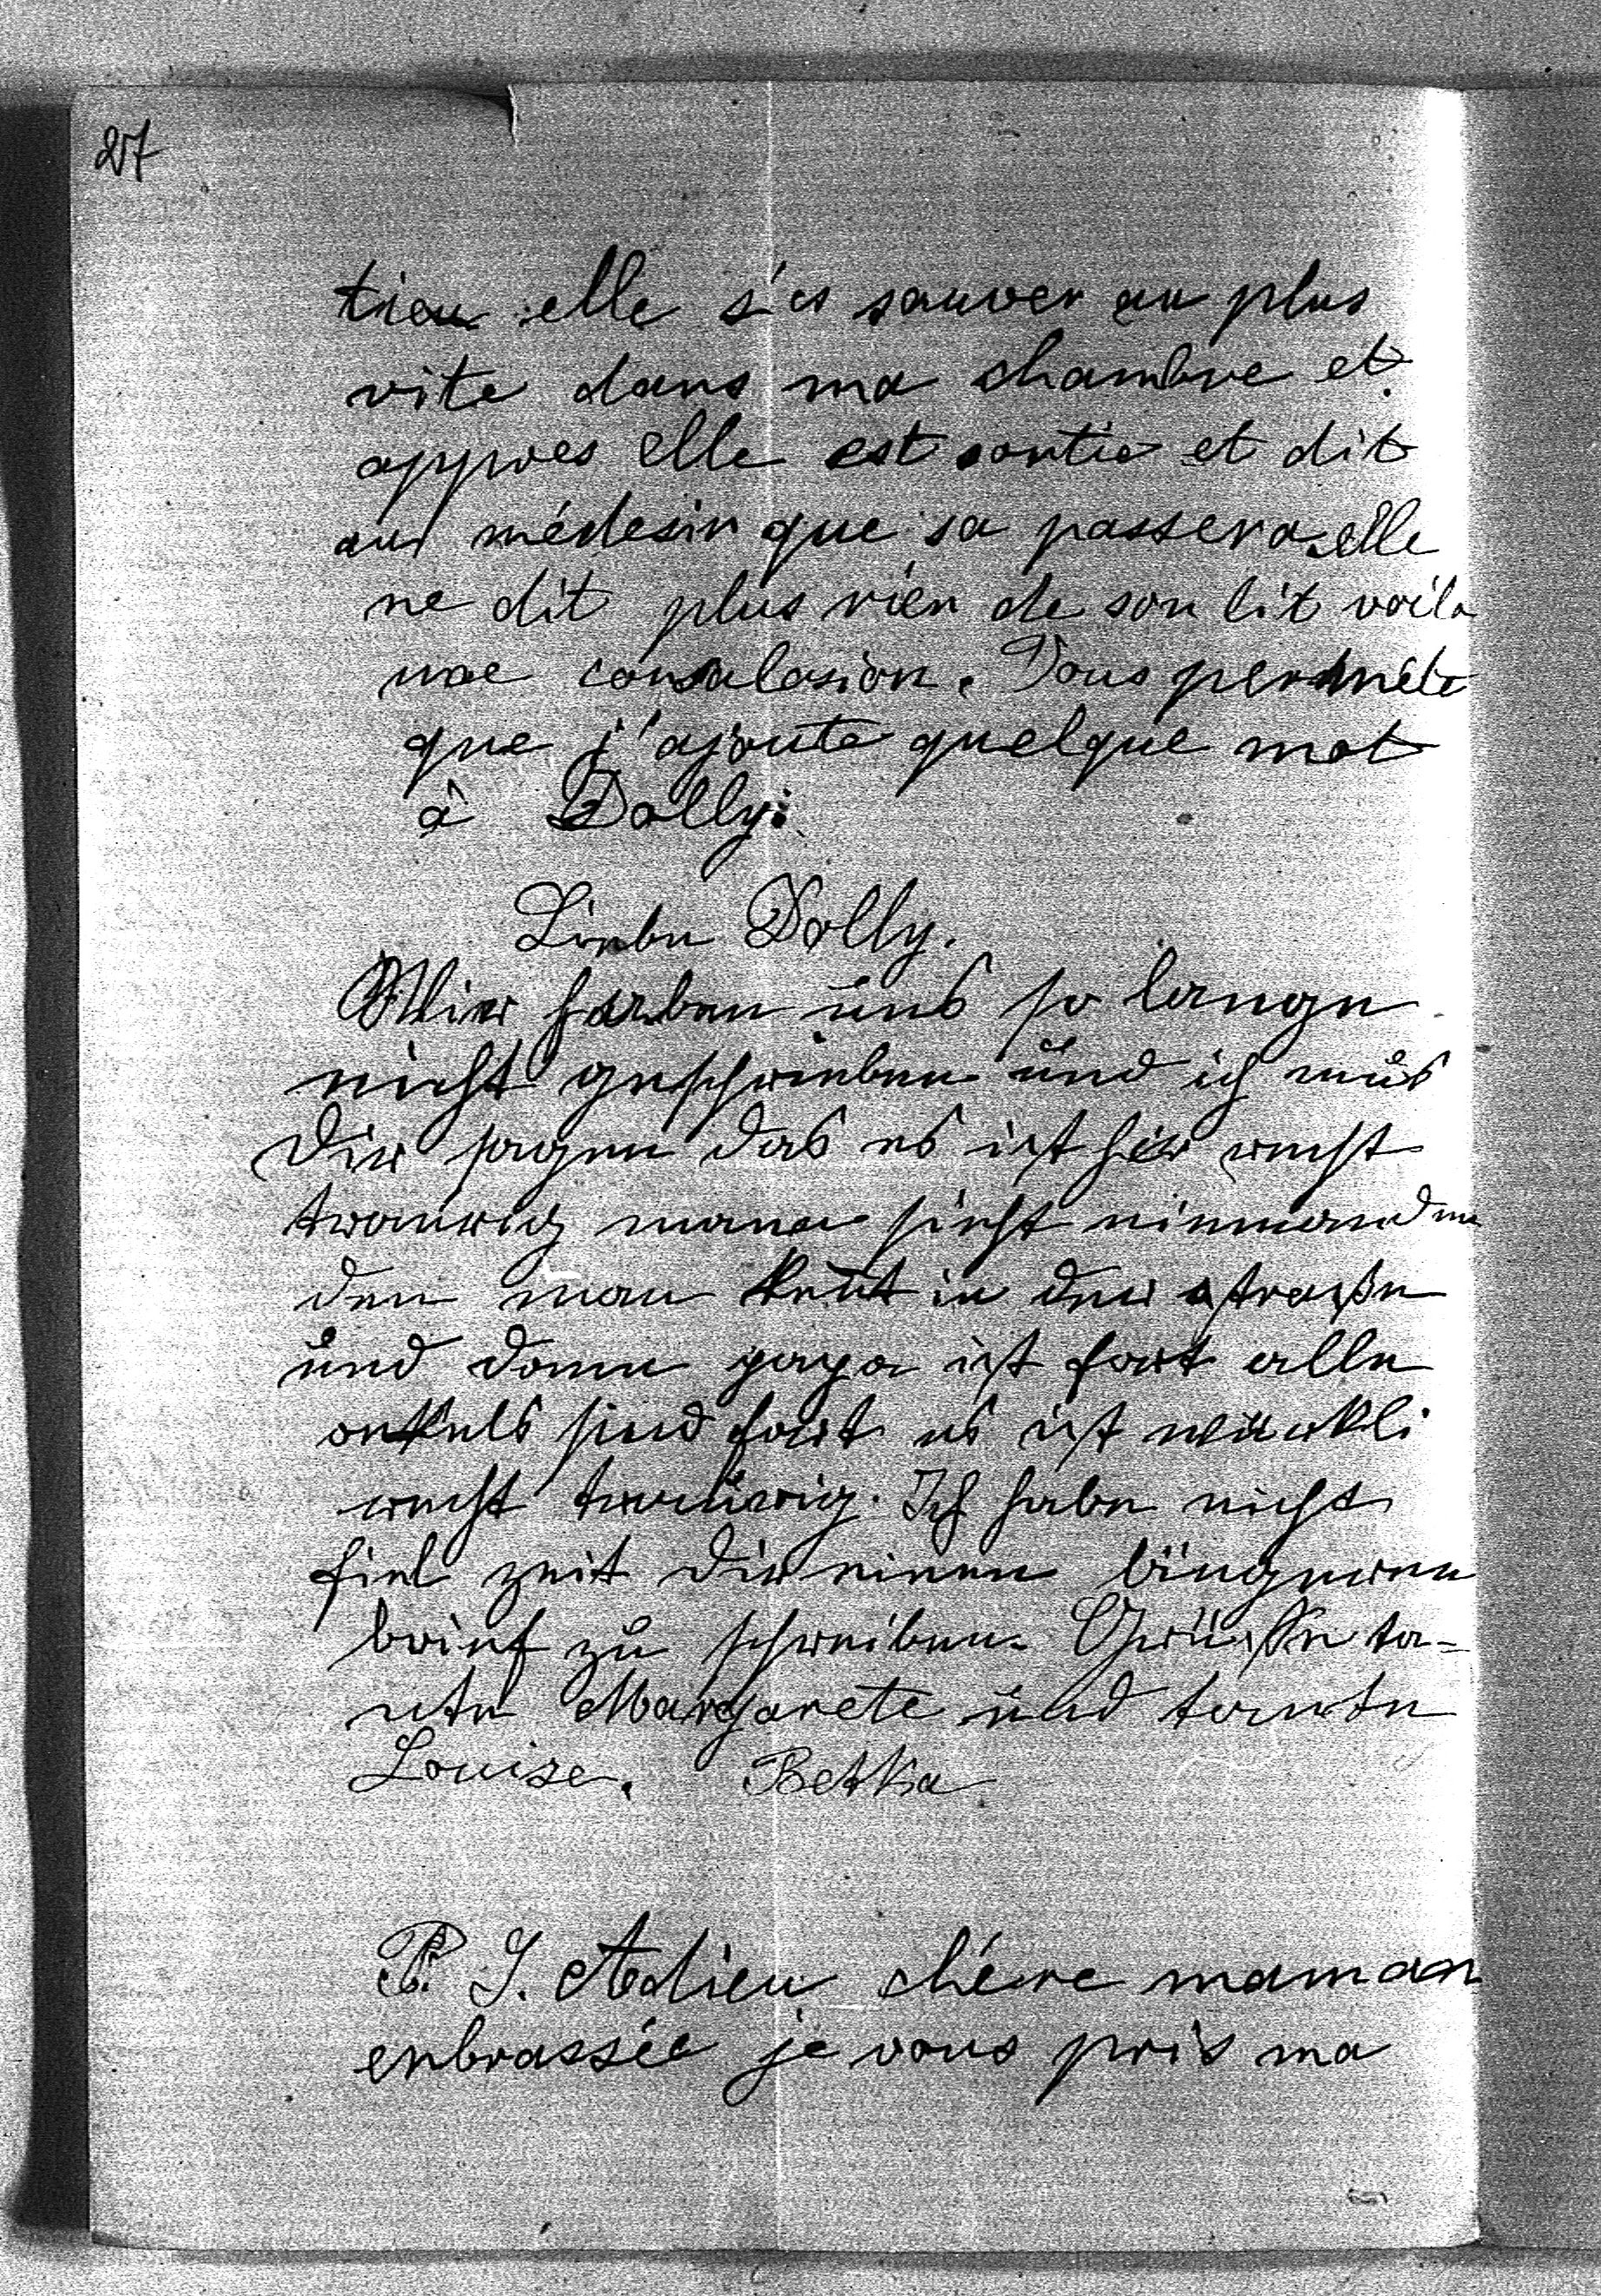 27
tien elle s'es sauver au plus
vite dans ma chambre et
appres elle est sortie et dit
au médesin que sa passera elle
ne dit plus rien de son lit voila
une consalasion. Vous permete
que j'ajoute quelque mot
à Dolly:
Liebe Dolly.
Wier haben uns so lange
nicht geschrieben und ich mus
Dir sagen das es ist hir recht
traurig mana sicht niemanden
den man kent in der straße
und dann papa ist fort alle
onkels sind fort es ist würkli
recht traurig. Ich habe nicht
fiel zeit dir einen längeren
brief zu schreiben. Grüße ta=
nte Margarete und tante
Louise. Betka.
P. S. Adieu chére maman
enbrassée je vous pris ma